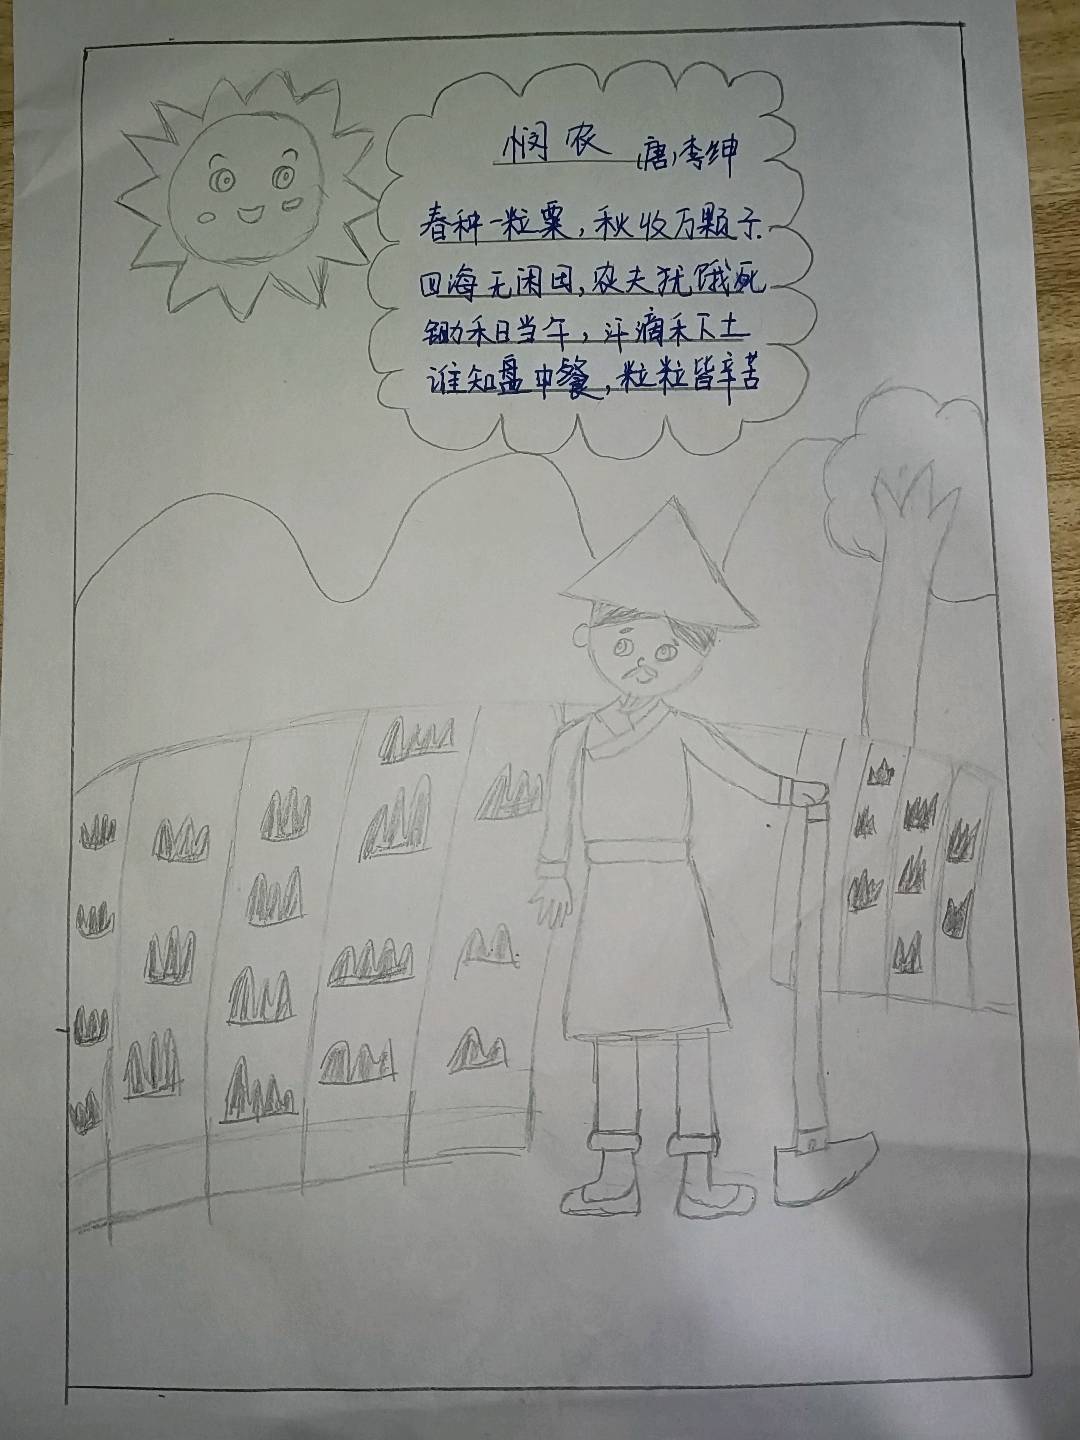 悯农 唐,李绅
春种一粒粟,秋收万颗子.
四海无闲田,农夫犹饿死
锄禾日当午,汗滴禾下土
谁知盘中餐,粒粒皆辛苦